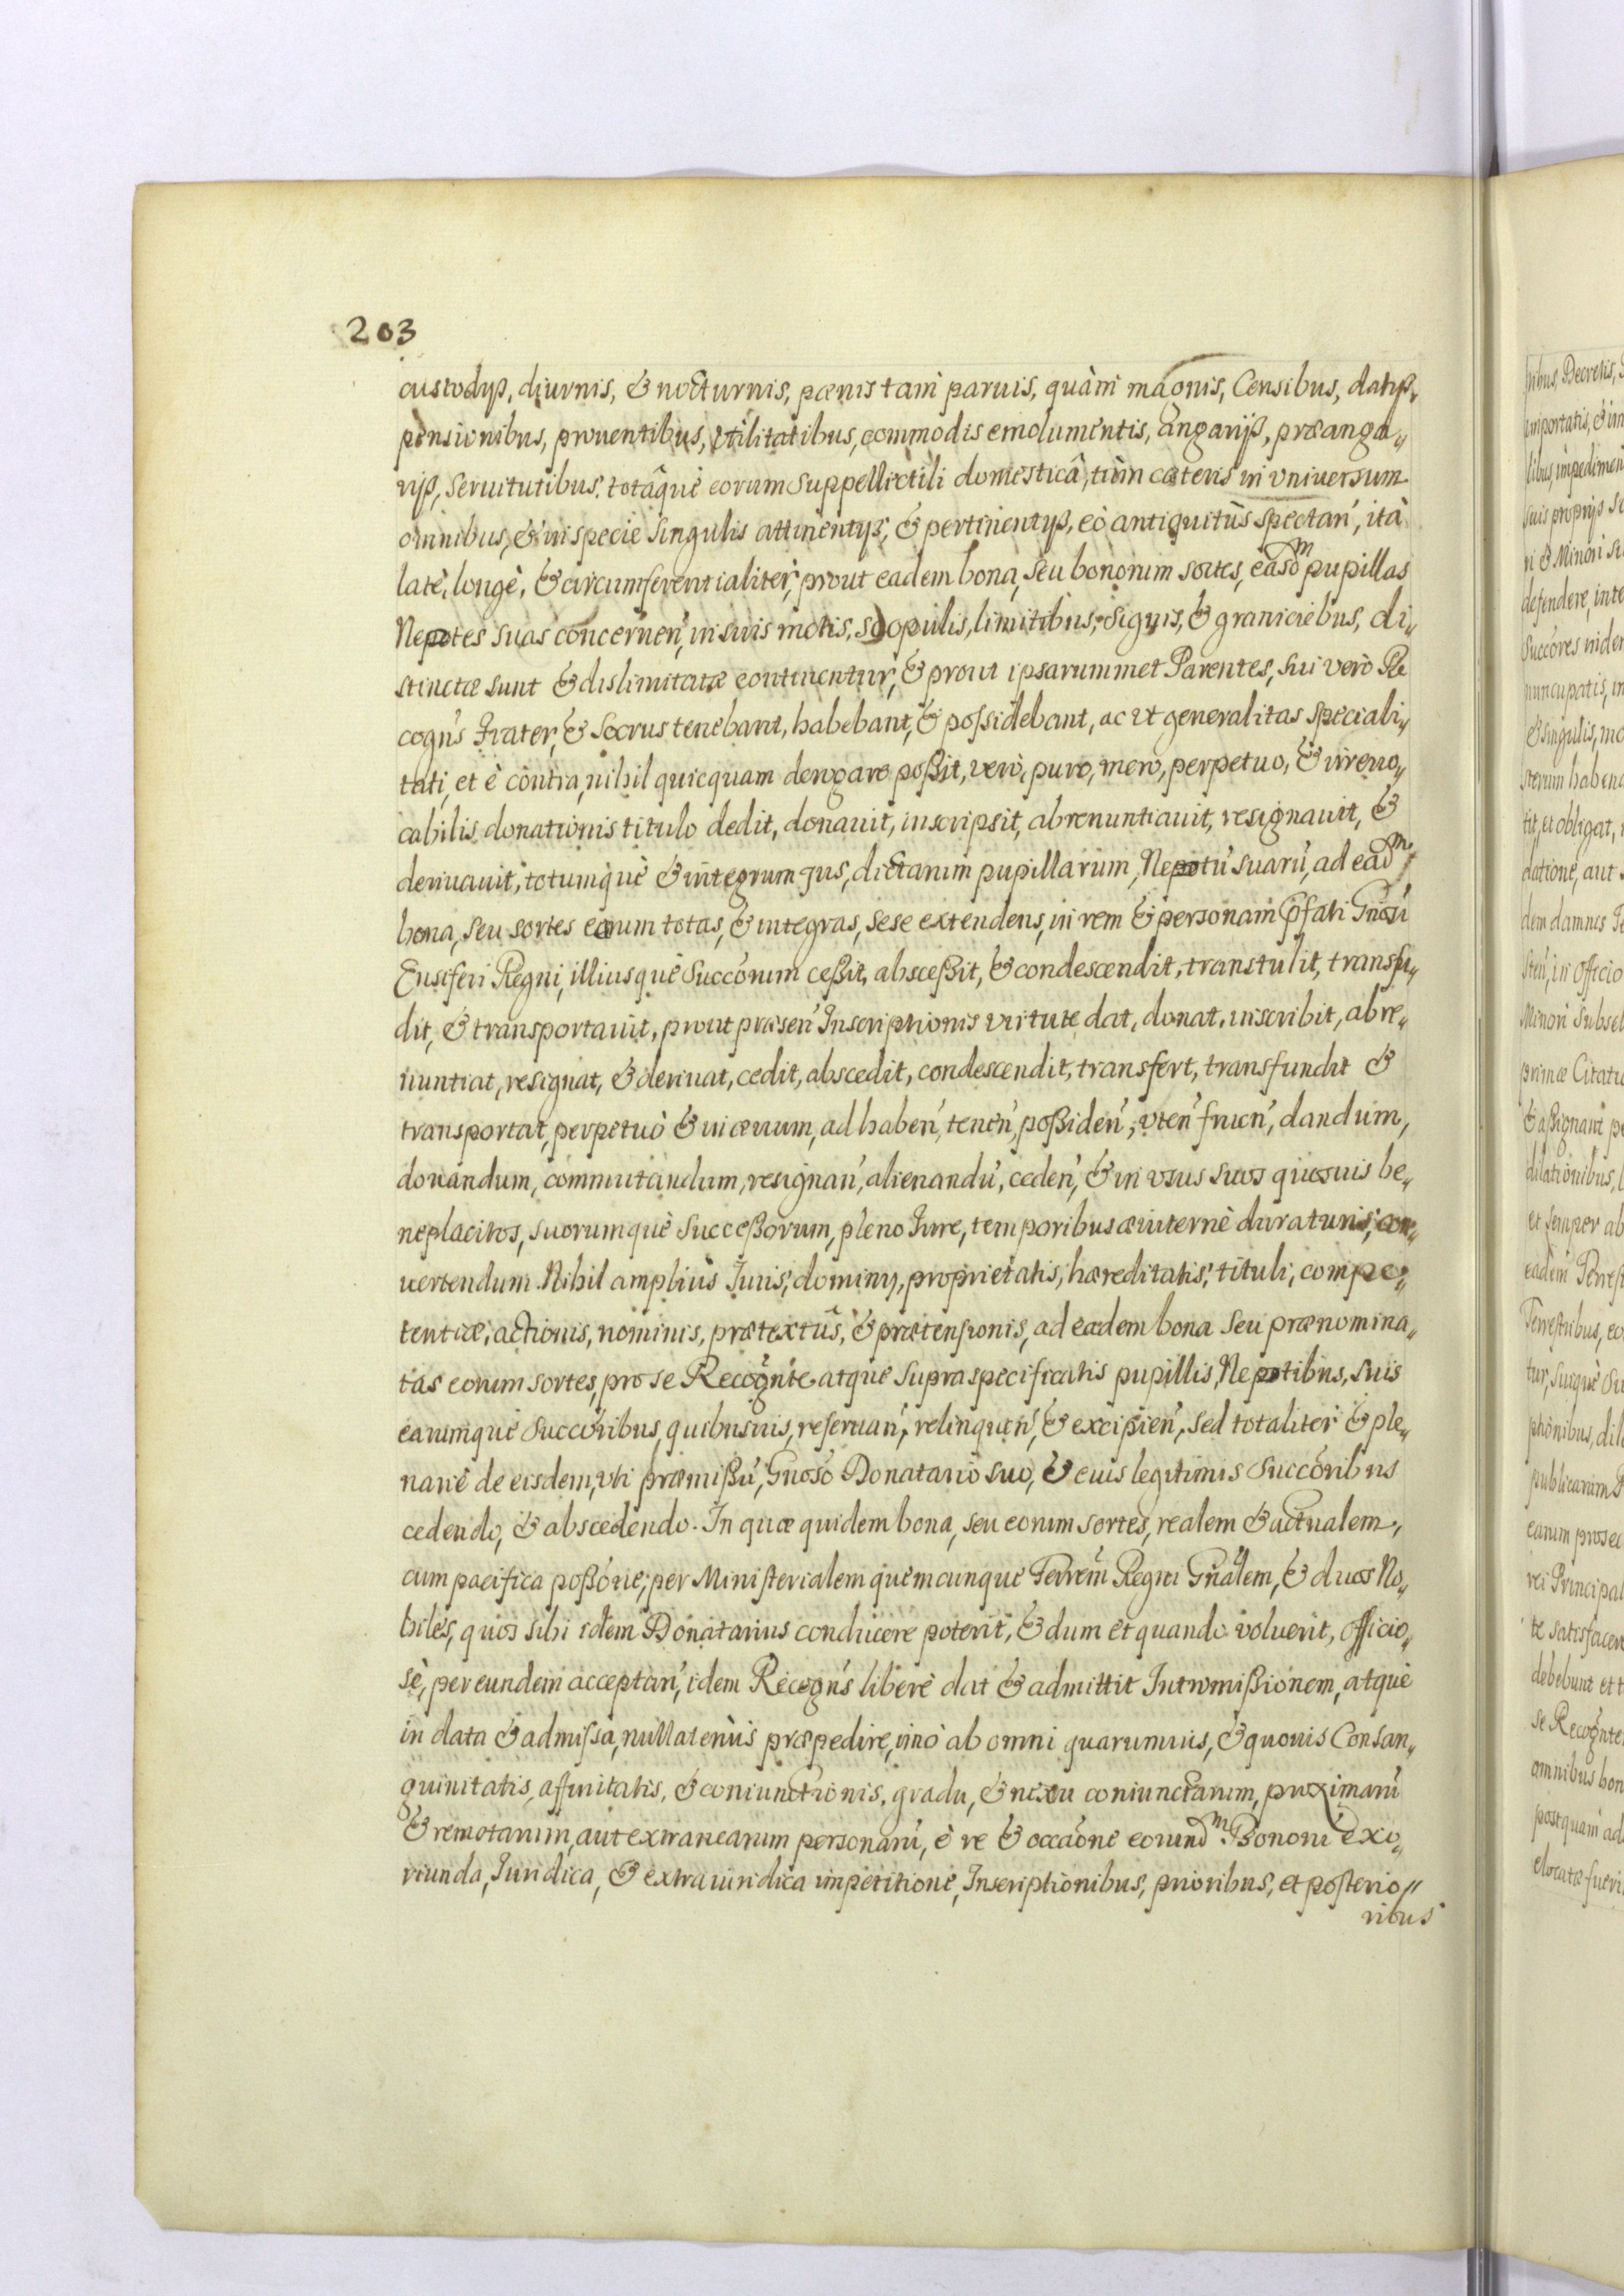 203
custodijs, diurnis, & nocturnis, pœnis tam paruis, quàm magnis, Censibus, datijs,
pensionibus, prouentibus, vtilitatibus, commodis emolumentis, angarijs, præanga„
rijs, seruitutibus, totâquè eorum suppellectili domesticâ, tùm cæteris in vniuersum
omnibus, & in specie singulis attinentijs, & pertinentijs, eò antiquitùs spectan', ità
latè, longè, & circumferentialiter, prout eadem bona, seu bonorum sortes, easd^m pupillas
Nepotes suas concernen', in suis metis, scopulis, limitibus, signis, & graniciebus, di„
stinctæ sunt & dislimitatæ continentur, & prout ipsarummet Parentes, sui verò Re
cogn̄s Frater, & Socrus tenebant, habebant, & possidebant, ac vt generalitas speciali„
tati, et è contra, nihil quicquam derogare possit, vero, puro, mero, perpetuo, & irreuo„
cabilis donationis titulo dedit, donauit, inscripsit, abrenuntiauit, resignauit, &
deriuauit, totumquè & integrum jus, dictarum pupillarum, Nepotū suarū, ad ead^m
bona, seu sortes eorum totas, & integras, sese extendens, in rem & personam p̄fati Gn̄osi
Ensiferi Regni, illiusquè Succōrum cessit, abscessit, & condescendit, transtulit, transfu„
dit, & transportauit, prout præsen' Inscriptionis virtute dat, donat, inscribit, abre„
nuntiat, resignat, & deriuat, cedit, abscedit, condescendit, transfert, transfundit &
transportat, perpetuò & in æuum, ad haben', tenen', possiden', vten' fruen', dandum,
donandum, commutandum, resignan', alienandū, ceden', & in vsus suos quosuis be„
neplacitos, suorumquè successorum, pleno Iure, temporibus æuiternè duraturis, con„
uertendum. Nihil ampliùs Iuris, dominij, proprietatis, hæreditatis, tituli, compe„
tentiæ, actionis, nominis, prætextûs, & prætensionis, ad eadem bona seu prænomina„
tas eorum sortes, pro se Recogn̄te atquè supraspecificatis pupillis, Nepotibus, suis
earumquè succōribus, quibusuis, reseruan', relinquen', & excipien', sed totaliter & ple„
nariè de eisdem, vti præmissū, Gn̄oso Donatario suo, & eius legitimis succōribus
cedendo, & abscedendo. In quæ quidem bona, seu eorum sortes, realem & actualem,
cum pacifica possōne, per Ministerialem quemcunquè Terrem̄ Regni Gn̄alem, & duos No„
biles, quos sibi idem Donatarius conducere poterit, & dum et quando voluerit, Officio„
sè, per eundem acceptan', idem Recogn̄s liberè dat & admittit Intromissionem, atquè
in data & admissa, nullatenùs præpedire, imò ab omni quarumuis, & quouis Consan„
guinitatis, affinitatis, & coniunctionis, gradu, & nexu coniunctarum, proximarū
& remotarum, aut extranearum personarū, è re & occaōne eorund^m Bonorū exo„
riunda, Iuridica, & extraiuridica impetitione, Inscriptionibus, prioribus, et posterio„
ribus